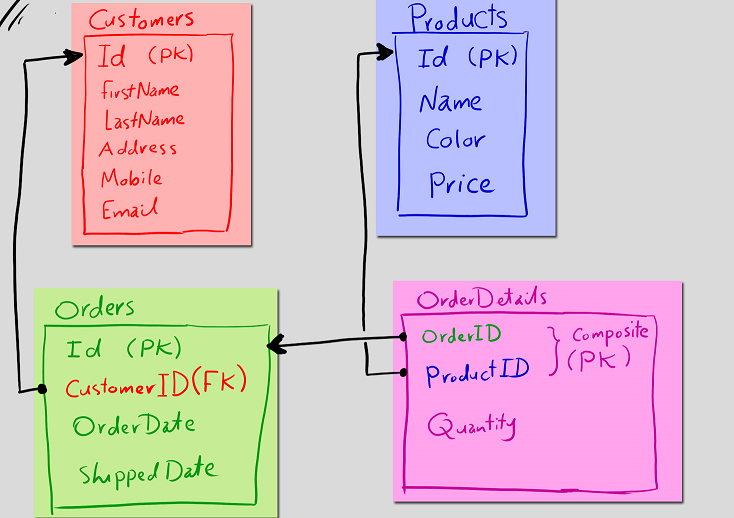 Customers
Id (PK)
FirstName
LastName
Address
Mobile
Email
Products
Id (PK)
Name
Color
Price
Orders
Id (PK)
CustomerID(FK)
OrderDate
ShippedDate
OrderDetails
OrderID
ProductID
Composite
(PK)
Quantity